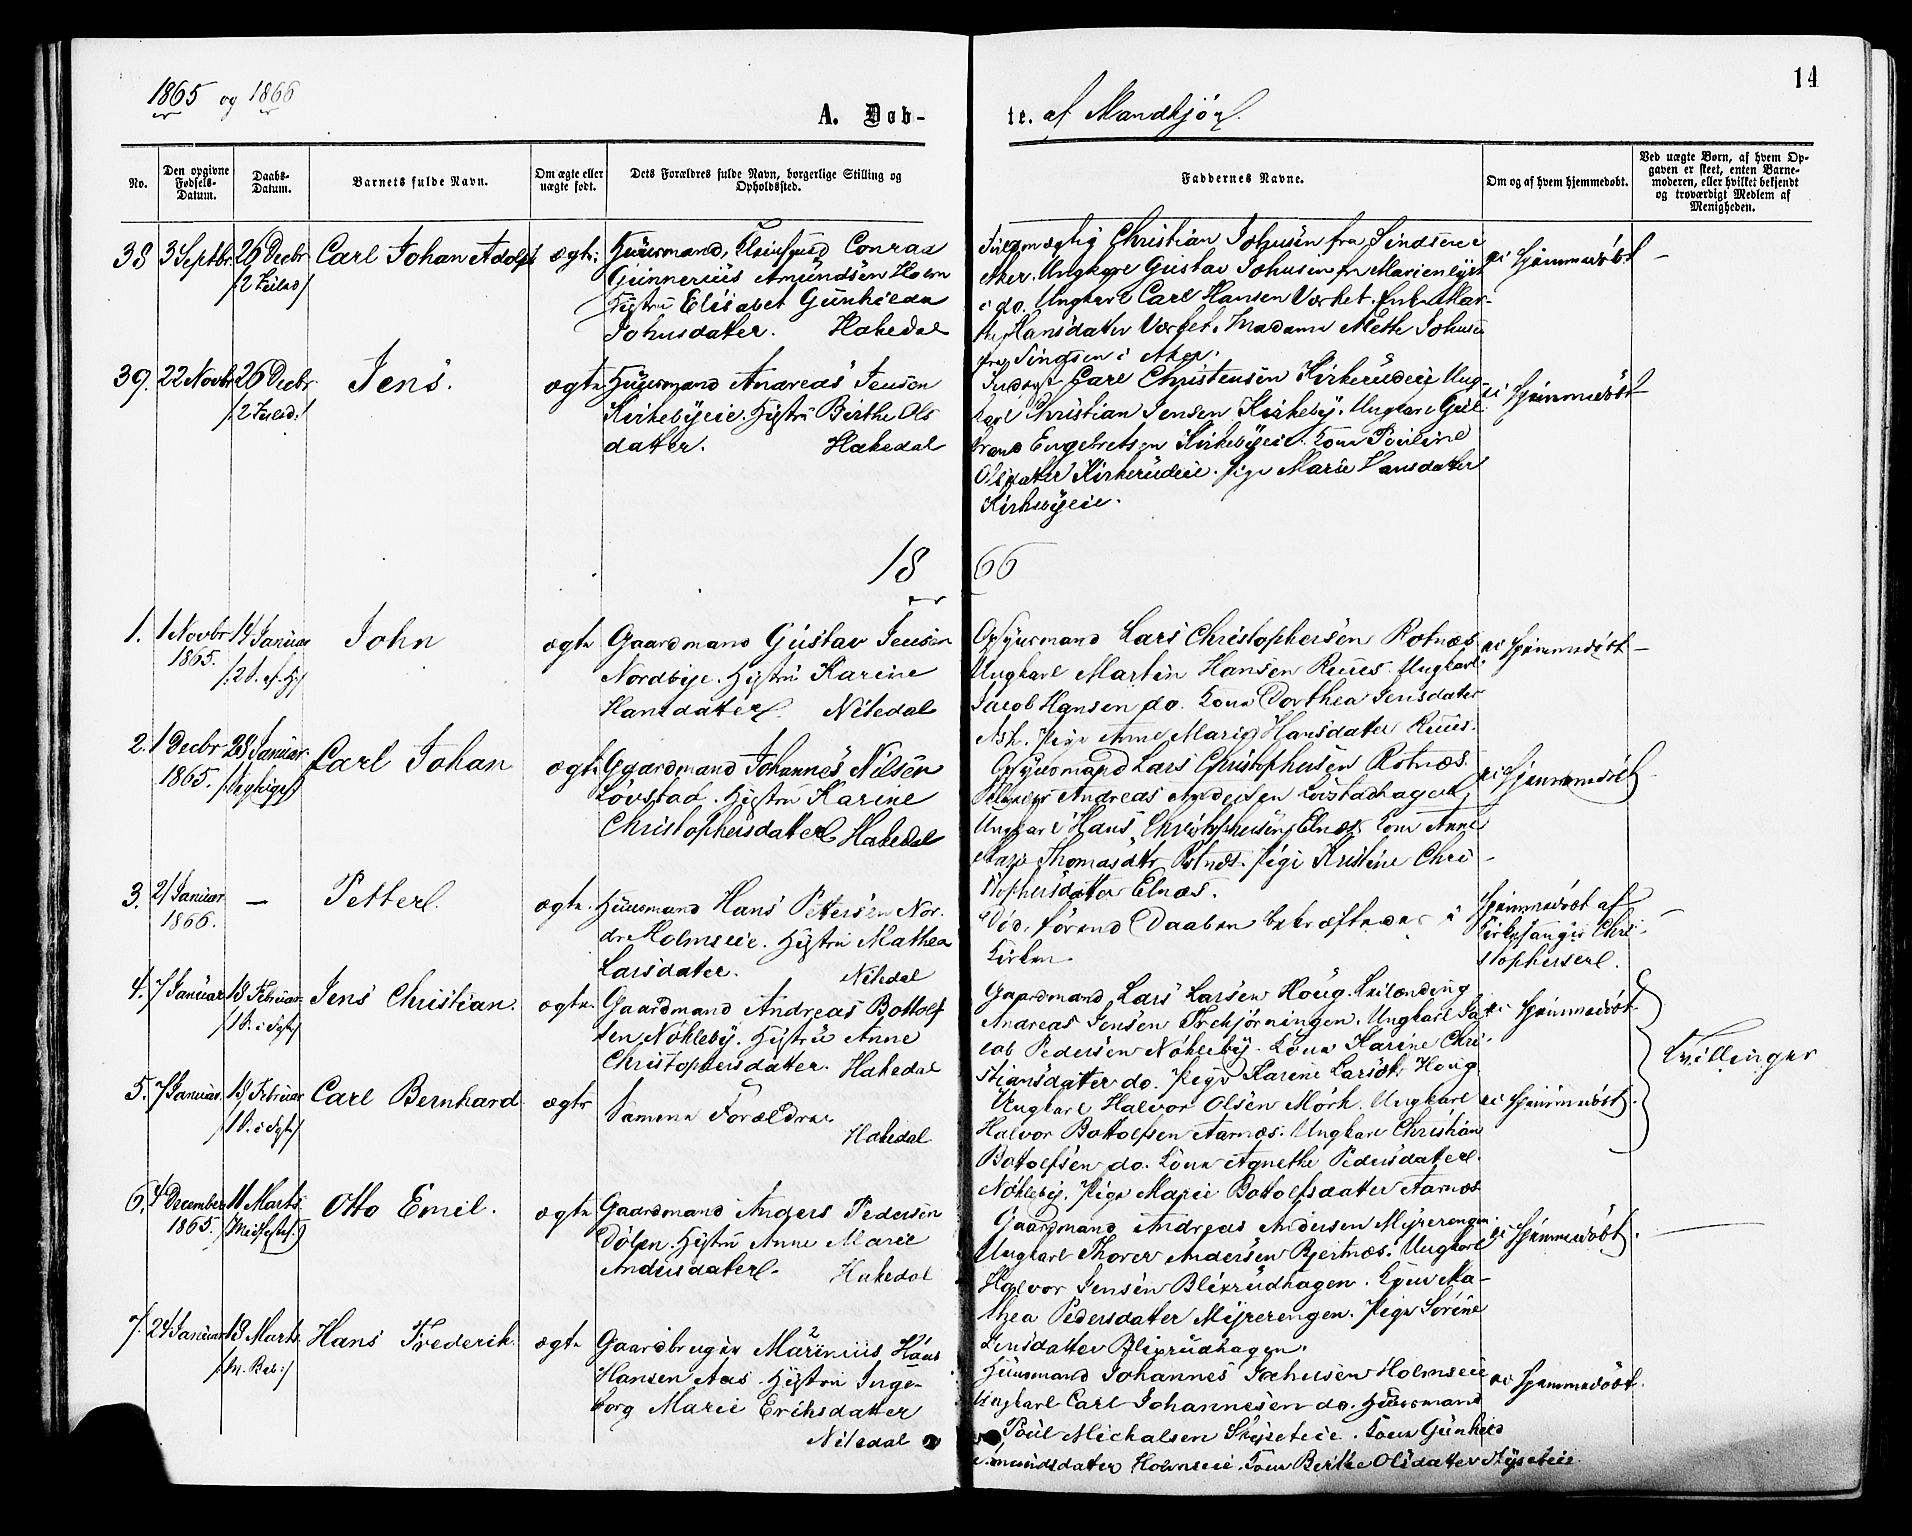 1865 og 1866
14
A. Døb-
te. af Mandkjøn.
No.
Den opgivne Fødsels-Datum.
Daabs-Datum.
Barnets fulde Navn.
Om ægte eller uægte født.
Dets Forældres fulde Navn, borgerlige Stilling og Opholdssted.
Faddernes Navne.
Om og af hvem hjemmedøbt.
Ved uægte Børn, af hvem Opgaven er skeet, enten Barnemoderen, eller hvilket bekjendt og troværdigt Medlem af Menigheden.
38 3 Septbr 26 Decbr Carl Johan Adolph ægte. Huusmand, Conrad
/2 Juledag/ Gunnerius Amundsen Holm
Hustru Elisabet Gunhilda
Johnsdatter. Hakedal
Christian Johnsen fra Sindsen i
Aker. Ungkarl Gustav Johnsen fra Marienlyst
i do. Ungkarl Carl Hansen Værket. Enke Mar-
the Hansdatter Værket. Madame Mette Johnsen
fra Sindsen i Aker.
ei hjemmedøbt –
39. 22 Novbr 26 Decbr Jens. ægte Huusmand Andreas Jensen
/2 Juled./ Kirkebyeie. Hustru Birthe Ols
datter. Hakedal
Inderst Carl Christensen Kirkerudeie Ung-
karl Christian Jensen Kirkeby. Ungkarl Gul
brand Engebretsen Kirkebyeie. Kone Pauline
Olsdatter Kirkerudeie. Pige Marie Hansdatter
Kirkebyeie.
ei hjemmedøbt
18 66
1. 1 Novbr 14 Januar John ægte Gaardmand Gustav Jensen
1865. Nordbye. Hustru Karine
Hansdatter. Nitedal
Opsynsmand Lars Christophersen Rotnæs
Ungkarl Martin Hansen Ruus. Ungkarl
Jacob Hansen do. Kone Dorthea Jensdatter
Ask. Pige Anne Marie Hansdatter Ruus.
ei hjemmedøbt –
2. 1 Decbr 28 Januar Carl Johan ægte Gaardmand Johannes Nilsen
1865. Løvstad. Hustru Karine
Christophersdatter Hakedal
Opsynsmand Lars Christophersen Rotnæs.
Andreas Andersen Løvstadhagen,
Ungkarl Hans Christophersen Elnæs. Kone Anne
Thomasdtr Rotnæs. Pige Kristine Chri
stophersdatter Elnæs.
ei hjemmedøbt
3. 21 Januar – Petter. ægte. Huusmand Hans Pettersen Nor-
1866. dre Holmseie. Hustru Mathea
Larsdatter. Nitedal
Død, førend Daaben bekræftedes i
Kirken
Hjemmedøbt af
Kirkesanger Chri
stophersen.
4. 7 Januar 18 Februar Jens Christian. ægte. Gaardmand Andreas Bottolf
/1 S. i Faste/ sen Nøkleby. Hustru Anne
Christophersdatter. Hakedal
Gaardmand Lars Larsen Houg. Leilænding
Andreas Jensen Trekjørningen. Ungkarl Ja-
cob Pedersen Nøkleby. Kone Karine Chri-
stiansdatter do. Pige Karene Larsdt. Houg
ei hjemmedøbt.
Tvillinger
5. 7 Januar. 18 Februar Carl Bernhard ægte Samme Forældre
/1 S. i Faste/ Hakedal
Ungkarl Halvor Olsen Mørk. Ungkarl
Halvor Bottolfsen Aarnæs. Ungkarl Christian
Bottolfsen do. Kone Agnethe Pedersdatter
Nøkleby. Pige Marie Bottolfsdatter Aarnæs
ei hjemmedøbt.
6. 4 December 11 Marts Otto Emil. ægte Gaardmand Anders Pedersen
1865. Dølen. Hustru Anne Marie
Andersdatter. Hakedal
Gaardmand Andreas Andersen Myrerengen.
Ungkarl Thorer Andersen Bjertnæs. Ungkarl
Halvor Jensen Blixrudhagen. Kone Ma-
thea Pedersdatter Myrerengen. Pige Sørine
Jensdatter Blixrudhagen.
ei hjemmedøbt.
7. 24 Januar 18 Marts Hans Frederik. ægte Gaardbruger Marinius Hans
Hansen Aas. Hustru Inge-
borg Marie Eriksdatter
Nitedal
Huusmand Johannes Holmseie
Ungkarl Carl Johannesen do. Huusmand
Poul Michalsen Skyseteie. Kone Gunhild
Holmseie. Kone Berthe Olsdatter
ei hjemmedøbt.